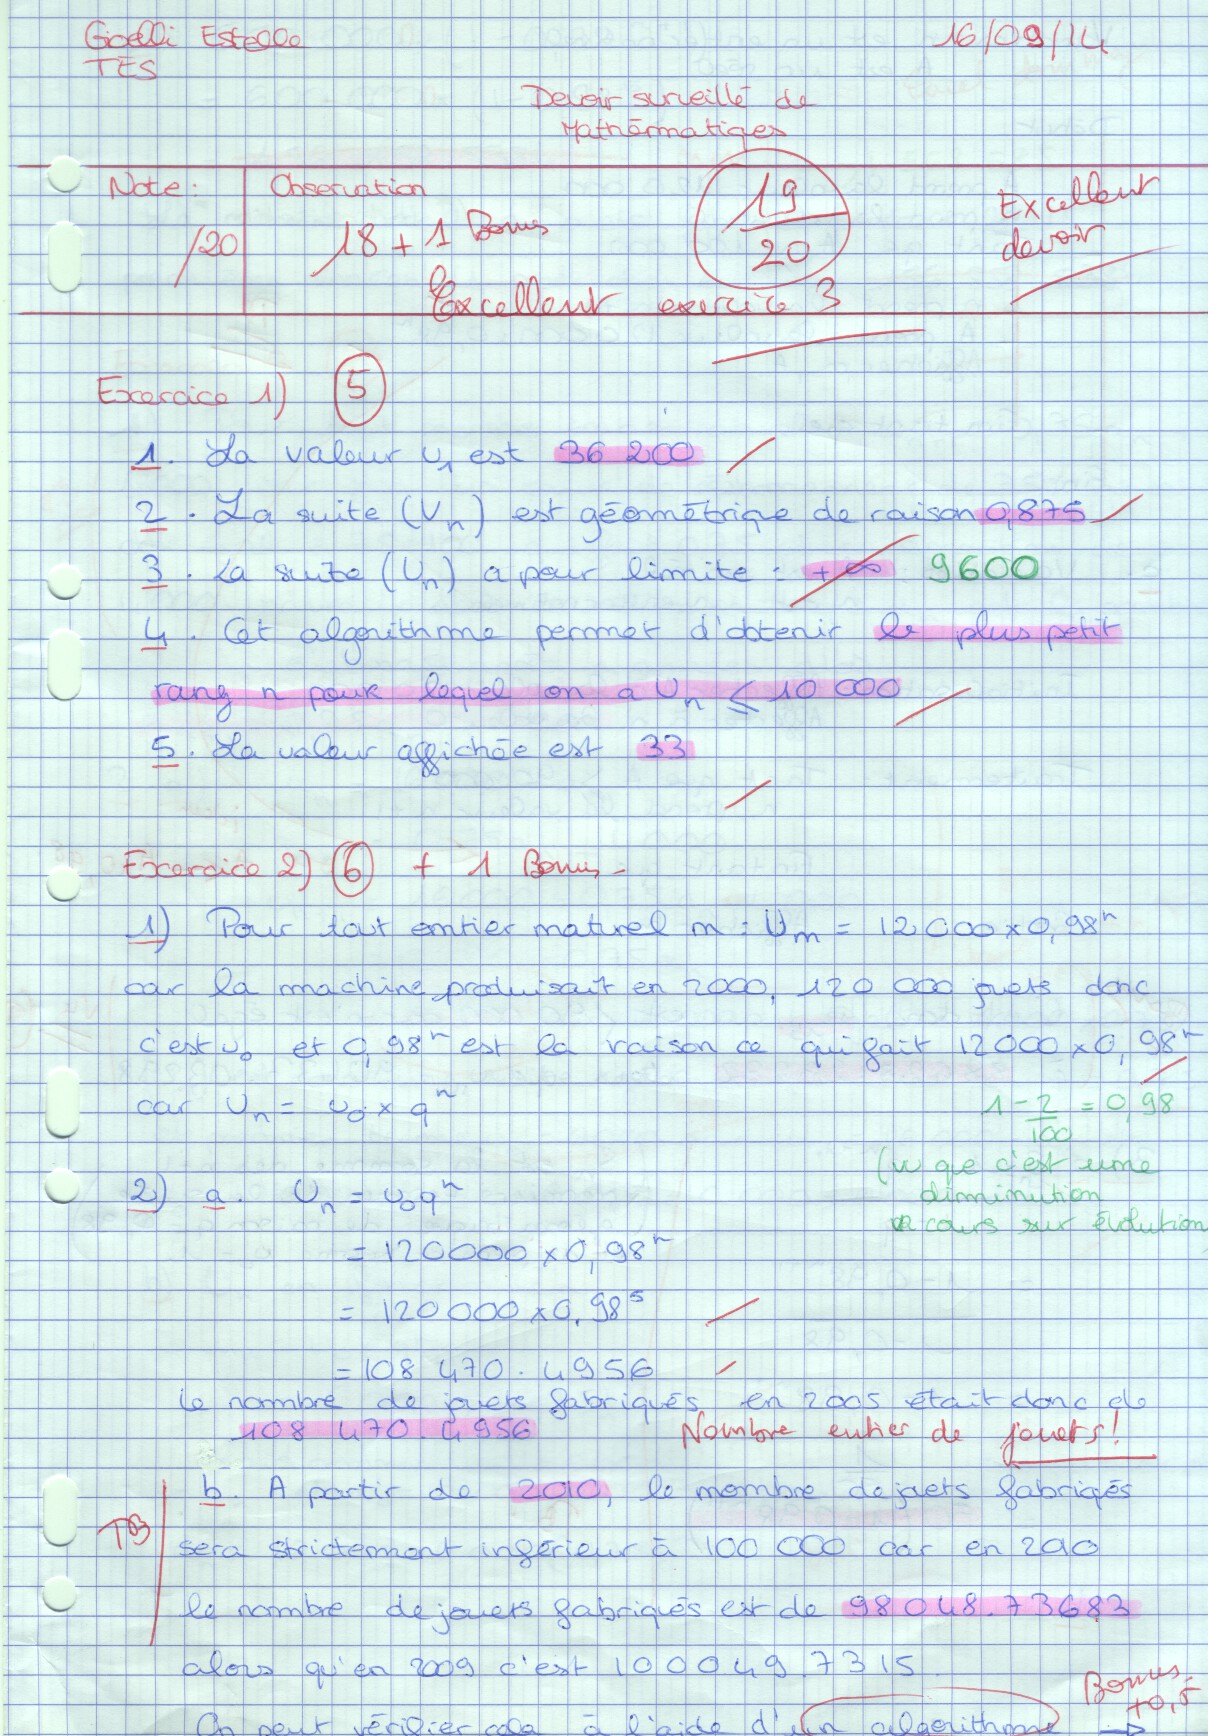 Gioelli Estelle 16/09/14
TES
Devoir surveillé de
Mathématiques
Note: Observation 19 Excellent
/20 18 + 1 Bonus 20 devoir
Excellent exercice 3
Exercice 1) 5
1. La valeur u1 est 36 200
2. La suite (Vn) est géométrique de raison 0,875
3. La suite (Un) a pour limite : +∞ 9600
4. Cet algorithme permet d'obtenir le plus petit
rang n pour lequel on a Un ≤ 10 000
5. La valeur affichée est 33
Exercice 2) 6 + 1 Bonus -
1) Pour tout entier naturel n : Un = 12000 x 0,98^n
car la machine produisait en 2000, 120 000 jouets donc
c'est u0 et 0,98^n est la raison ce qui fait 12000 x 0,98^n
car Un = u0 x q^n 1 - 2/100 = 0,98
(vu que c'est une
diminution
cours sur évolution
2) a. Un = u0q^n
= 120000 x 0,98^n
= 120000 x 0,98^5
= 108 470.4956
le nombre de jouets fabriqués en 2005 était donc de
108 470.4956 Nombre entier de jouets!
b. A partir de 2010, le nombre de jouets fabriqués
TB sera strictement inférieur à 100 000 car en 2010
le nombre de jouets fabriqués est de 98048.73683
alors qu'en 2009 c'est 100049.7315
On peut vérifier cela à l'aide d'un algorithme → Bonus +0,5